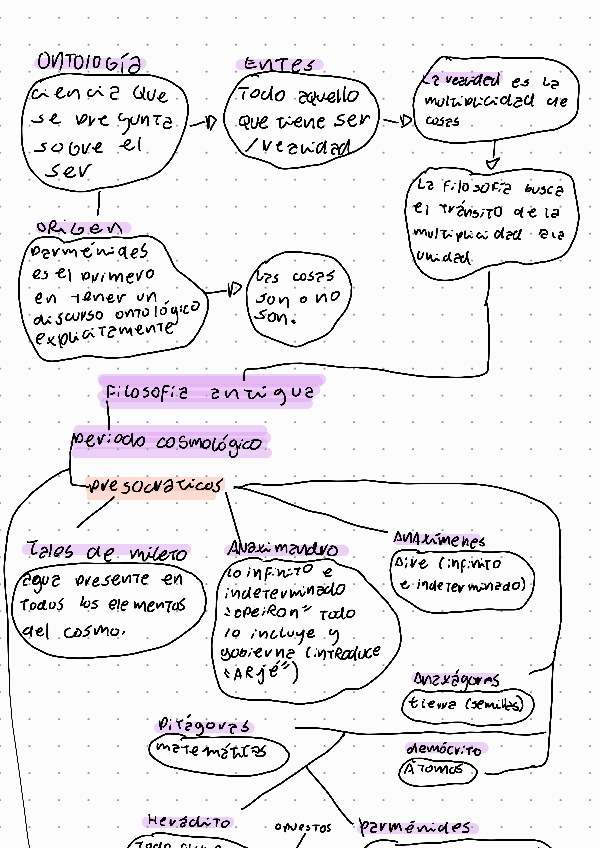 ONTOLOGÍA
ciencia que
se pregunta
sobre el
ser
ENTES
Todo aquello
que tiene ser
/realidad
La realidad es la
multiplicidad de
cosas
La filosofía busca
el tránsito de la
multiplicidad a la
unidad
ORIGEN
Parménides
es el primero
en tener un
discurso ontológico
explícitamente
Las cosas
son o no
son.
Filosofía antigua
periodo cosmológico
presocraticos
Tales de mileto
agua presente en
todos los elementos
del cosmo.
Anaximandro
lo infinito e
indeterminado
"apeiron" todo
lo incluye y
gobierna (introduce
"ARJé")
Anaxímenes
Aire (infinito
e indeterminado)
Anaxágores
tierra (semillas)
Pitágoras
matemáticas
demócrito
Átomos
Heráclito
opuestos
parménides